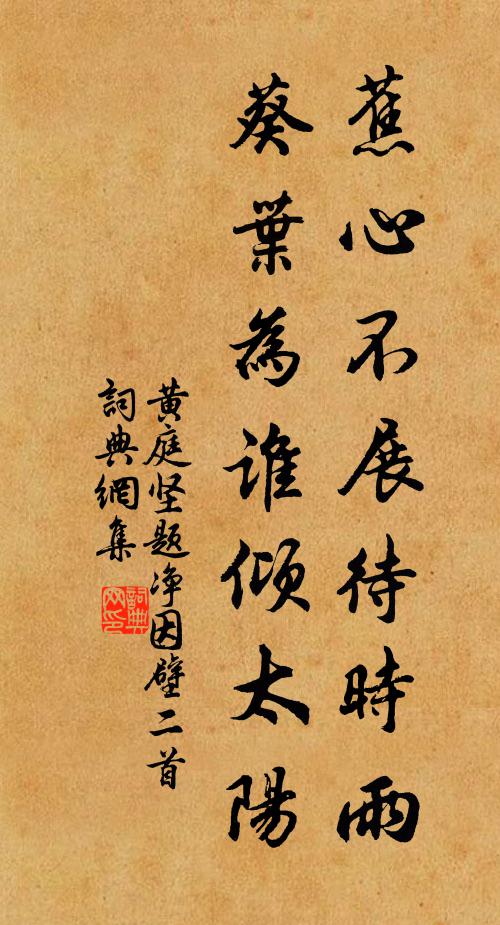 蕉心不展待時雨
葵葉為誰傾太陽
黄庭坚题净因壁二首
詞典網集
詞典网印